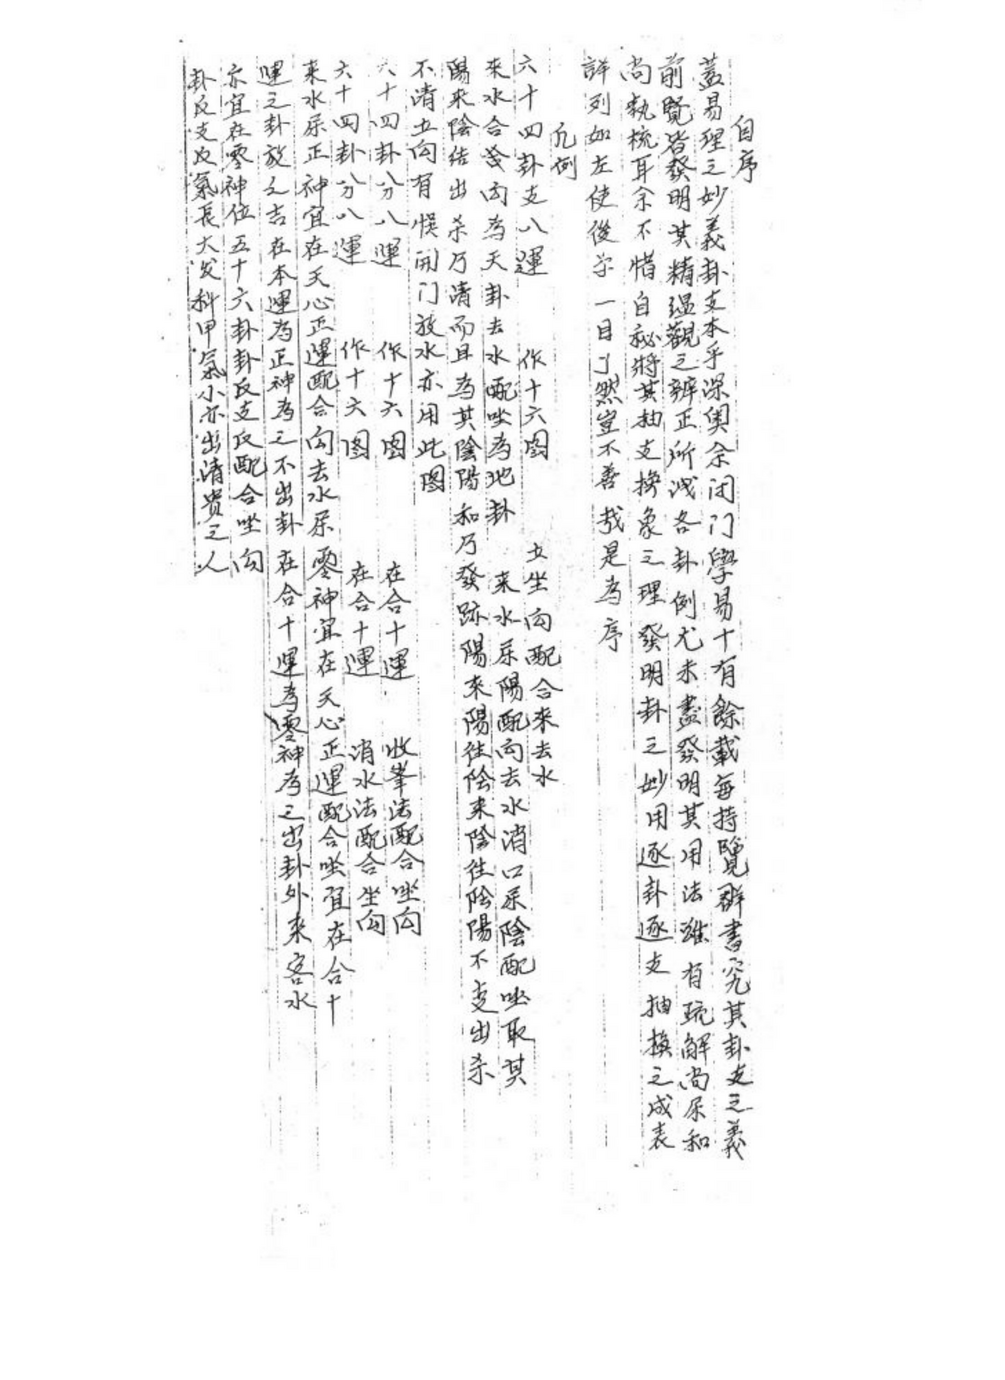 自序
蓋易理之妙義卦支本乎深奧余闭门學易十有餘載每持覽群書究其卦支之義
前覽皆發明其精蕴觀之辨正所诚各卦例尤未盡發明其用法雖有疏解尚屎和
尚執梳耳余不惜自秘將其抽支換象之理發明卦之妙用逐卦逐支抽換之成表
詳列如左使後学一目了然豈不善哉是為序
凡例
六十四卦支八運 作十六图 立坐向配合來去水
來水合为向為天卦去水配坐為地卦 来水屎陽配向去水消口屎陰配坐取其
陽來陰结出杀乃清而且為其陰陽和乃發跡陽來陽往陰来陰往陰陽不支出杀
不清立向有悮開门放水亦用此图
六十四卦分八運 作十六图 在合十運 收峯法配合坐向
六十四卦分八運 作十六图 在合十運 消水法配合坐向
来水屎正神宜在天心正運配合向去水屎零神宜在天心正運配合坐宜在合十
運之卦放之吉在本運為正神為之不出卦在合十運為零神為之出卦外来客水
亦宜在零神位五十六卦卦反支反配合坐向
卦反支反氣長大发科甲氣小亦出清贵之人